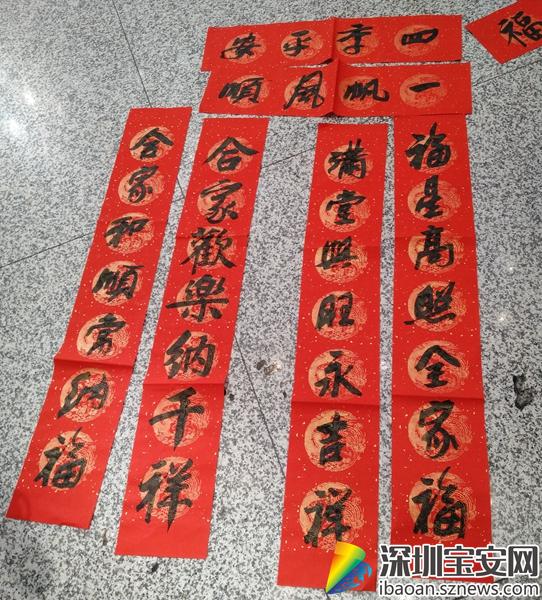 福
四季平安
一帆風順
福星高照全家福
滿堂興旺永吉祥
合家歡樂納千祥
合家和順常納福
深圳宝安网
ibaoan.sznews.com